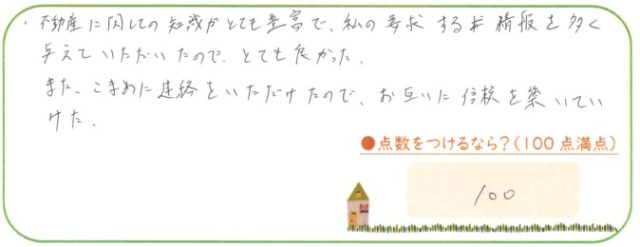 ・不動産に関しての知識がとても豊富で、私の要求する情報を多く
与えていただいたので、とても良かった。
また、こまめに連絡をいただけたので、お互いに信頼を築いてい
けた。
●点数をつけるなら?(100点満点)
100